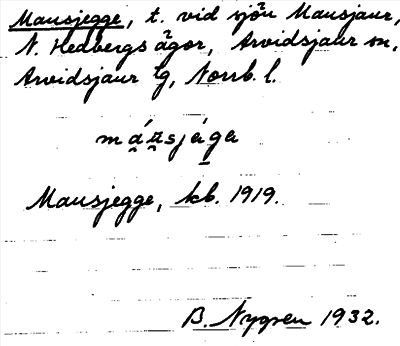 Mausjegge, t. vid sjön Mausjaur,
N. Hedbergs ägor, Arvidsjaur sn,
Arvidsjaur lg, Norrb. l.
máusjága
Mausjegge, kb. 1919.
B. Nygren 1932.